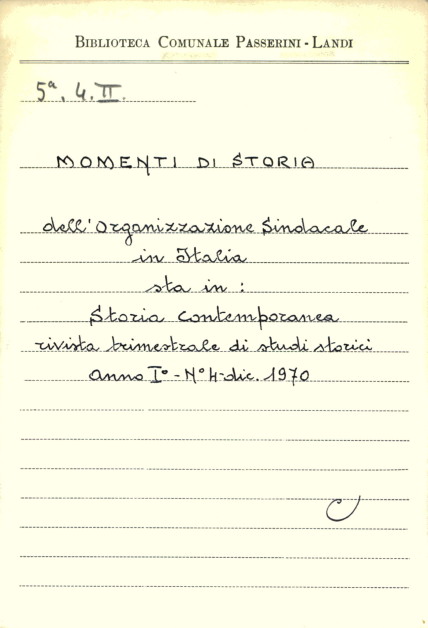 BIBLIOTECA COMUNALE PASSERINI-LANDI
5ª. 4. II.
MOMENTI DI STORIA
dell'Organizzazione Sindacale
in Italia
sta in :
Storia Contemporanea
rivista trimestrale di studi storici
Anno I° - N° 4 - dic. 1970
C